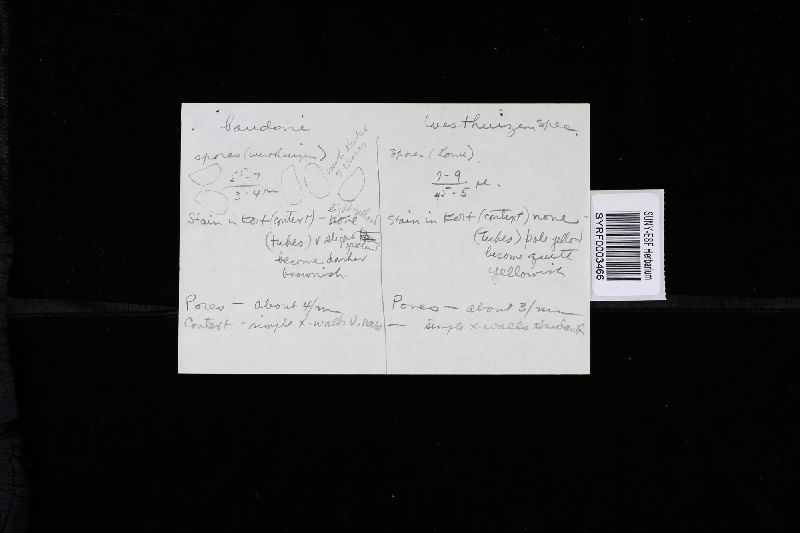 baudoni
spores (westhuizen)
5-7
3-4 µm
Stain in KOH (context) - none
light yellow
(tubes) v slight
yellow
become darker
brownish.
Pores - about 4/m
Context - simple x-walls v. rare
Westhuizen spec.
Spores (Lowe)
7-9
4.5-5 µ.
Stain in KOH (context) none -
(tubes) pale yellow
become quite
yellowish
Pores - about 3/mm
- simple x-walls abundant
SUNY-ESF Herbarium
SYRF0003466